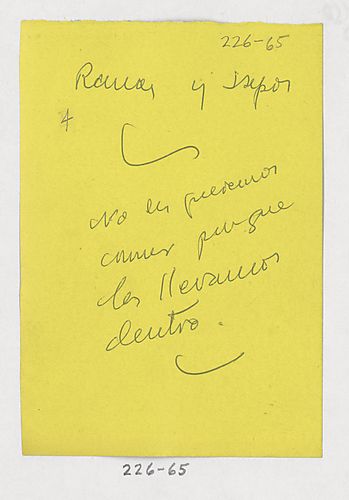 226-65
Ranas y sapos
4
No les queremos
comer porque
los llevamos
dentro.
226-65